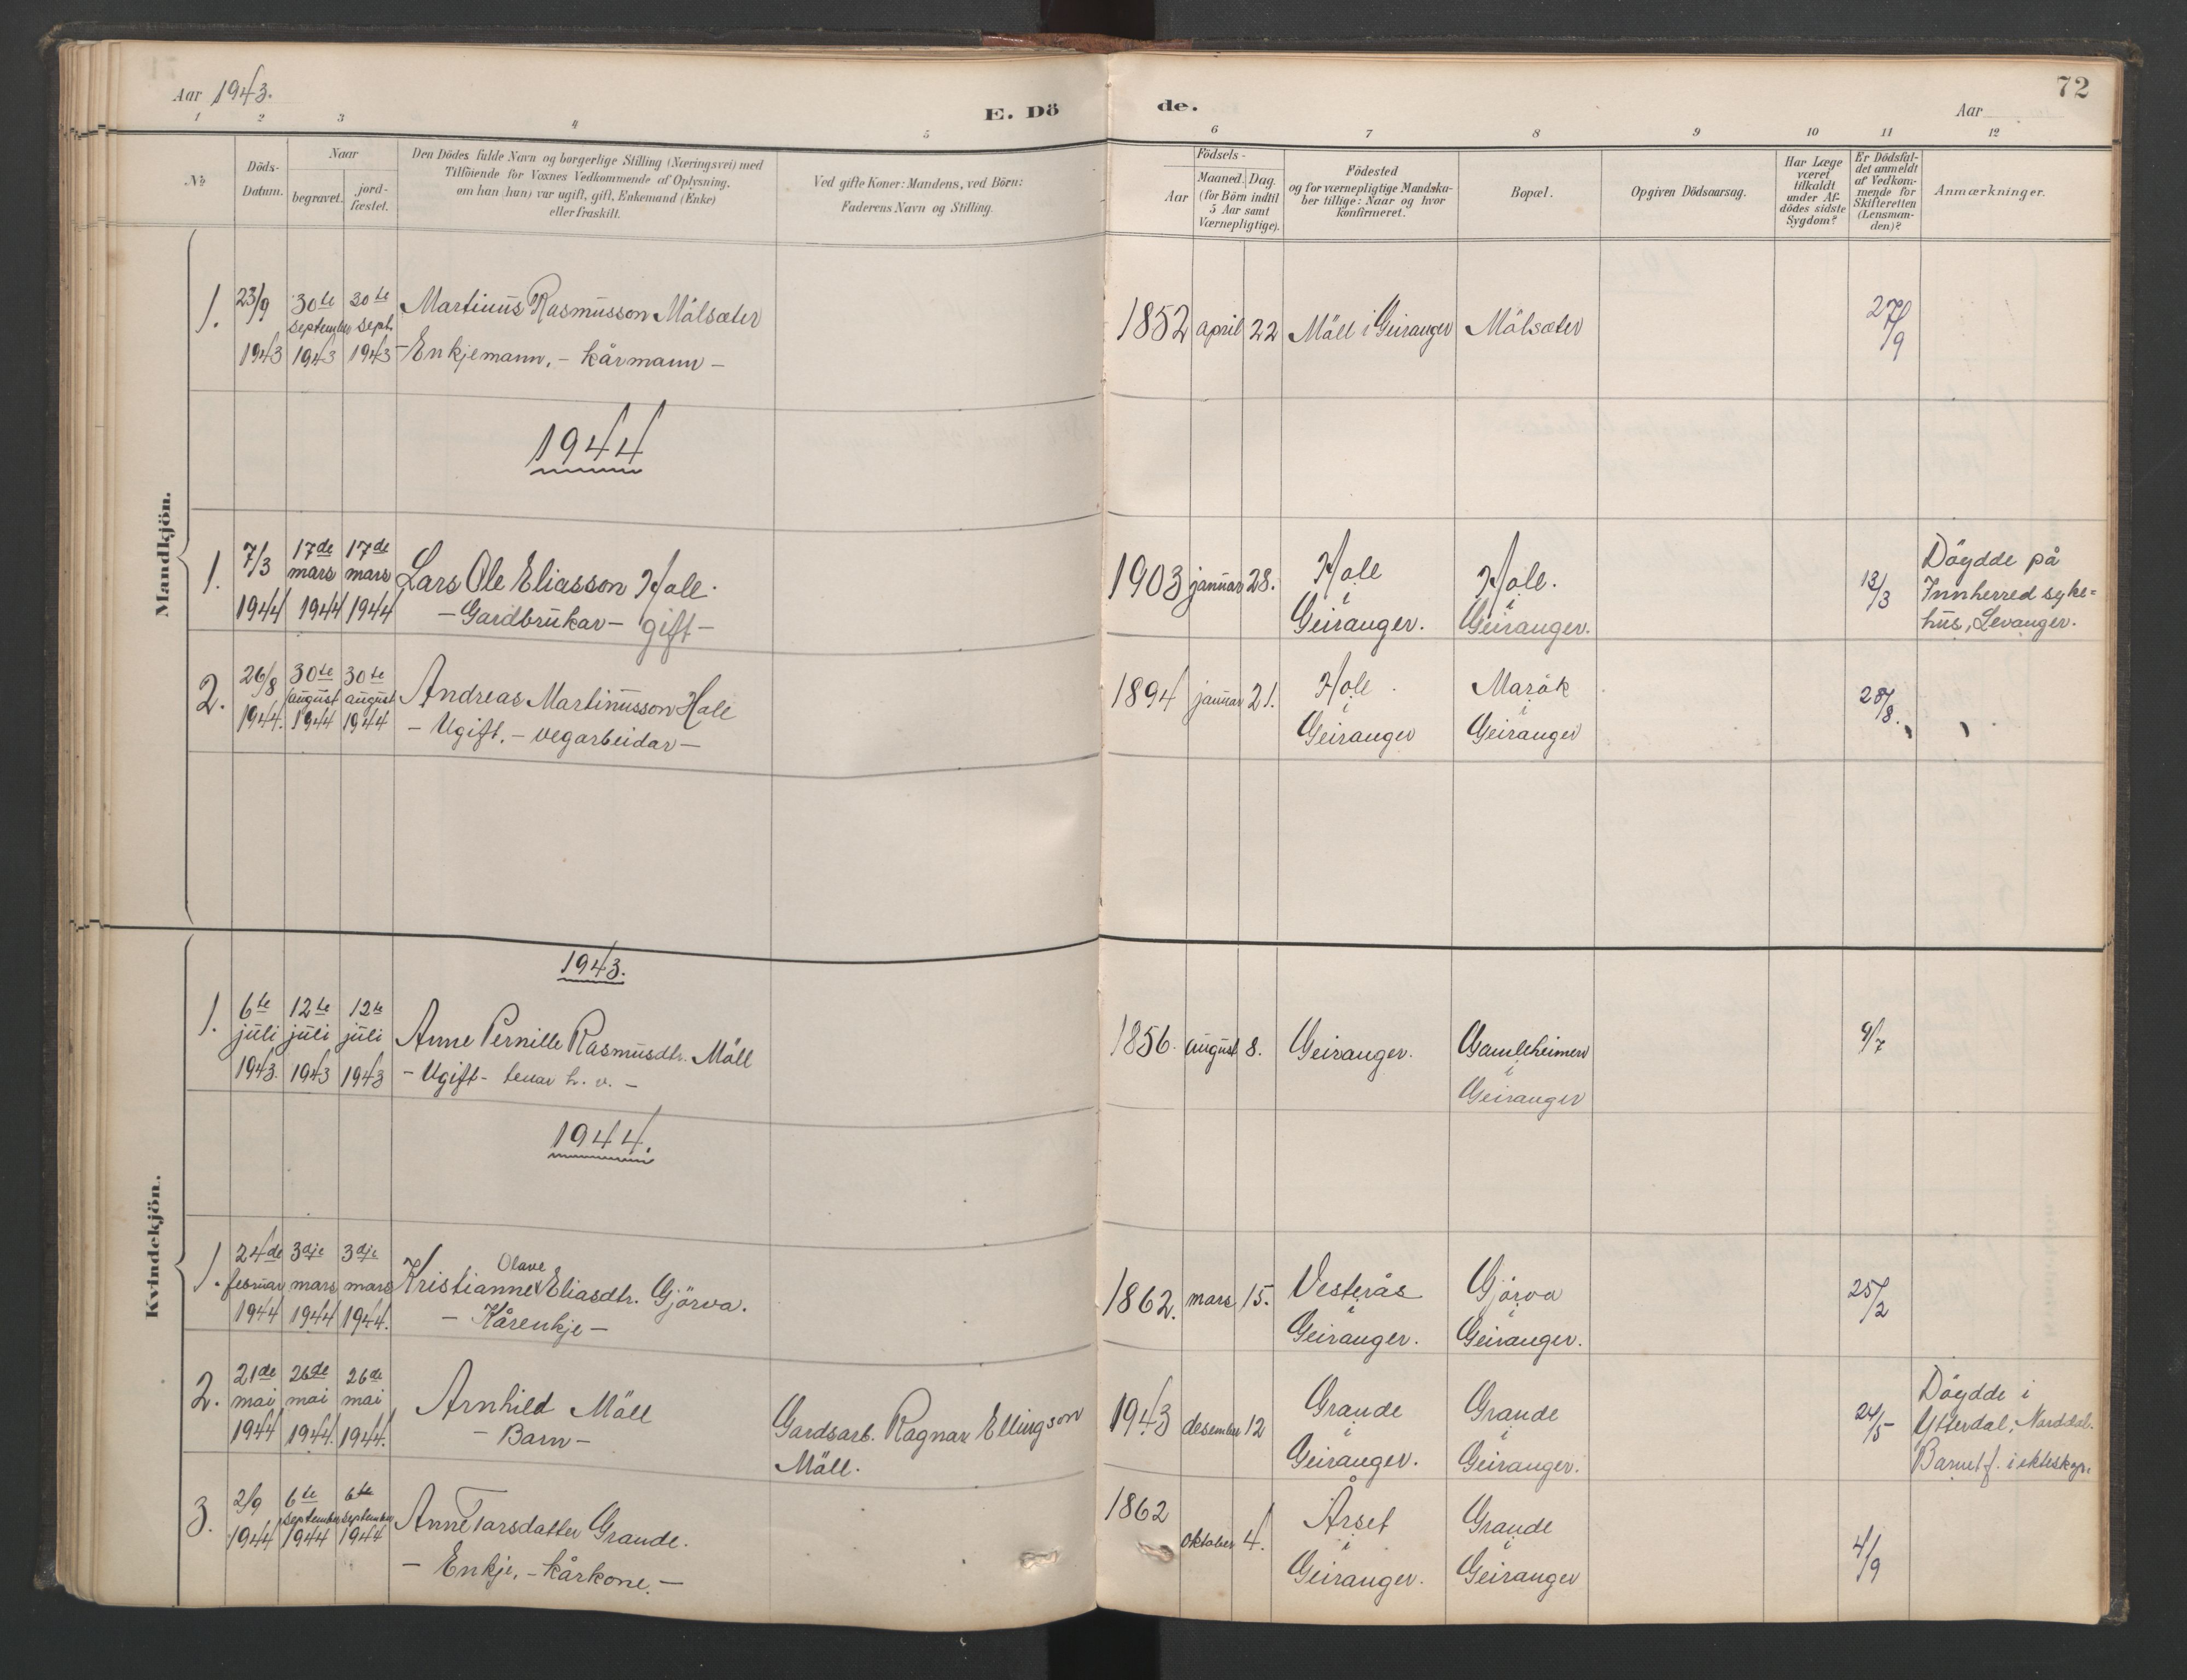 Aar 1943.
E. Dö
de.
Aar
72
1 2 3 4 5 6 7 8 9 10 11 12
No
Döds-
Datum.
Naar
begravet.
jord-
fæstet.
Den Dödes fulde Navn og borgerlige Stilling (Næringsvei) med
Tilföiende for Voxnes Vedkommende af Oplysning,
om han (hun) var ugift, gift, Enkemand (Enke)
eller fraskilt.
Ved gifte Koner: Mandens, ved Börn:
Faderens Navn og Stilling.
Födsels-
Aar
Maaned.
Dag.
(for Börn indtil
5 Aar samt
Værnepligtige).
Födested
og for værnepligtige Mandska-
ber tillige: Naar og hvor
konfirmeret.
Bopæl.
Opgiven Dödsaarsag.
Har Læge
været
tilkaldt
under Af-
dödes sidste
Sygdom?
Er Dödsfal-
det anmeldt
af Vedkom-
mende for
Skifteretten
(Lensman-
den)?
Anmærkninger.
Mandkjön.
1. 23/9 30te 30te Martinus Rasmusson Mölsæter 1852 april 22 Möll i Geiranger Mölsæter 27/9
september sept.
1943 1943 1943 - Enkjemann, - kårmann -
1944
1. 7/3 17de 17de Lars Ole Eliasson Hole. 1903 januar 28. Hole Hole. 13/3 Döydde på
mars mars i i Innherred syke=
1944 1944 1944 - Gardbrukar - gift - Geiranger. Geiranger. hus, Levanger.
2. 26/8 30te 30te Andreas Martinusson Hole 1894 januar 21. Hole Maråk 28/8.
august august i i
1944. 1944 1944 - Ugift, - vegarbeidar - Geiranger Geiranger
Kvindekjön.
1943.
1. 6te 12te 12te Anne Pernille Rasmusdtr. Möll 1856. august 8. Geiranger. Gamleheimen 9/7
juli juli juli i
1943. 1943 1943 - Ugift - tenar h. v. - Geiranger
1944.
1. 24de 3dje 3dje Olave
februar mars mars Kristianne Eliasdtr. Gjörva. 1862. mars 15. Vesterås Gjörva 25/2
1944 1944 1944. - Kårenkje - i
Geiranger. Geiranger.
2. 21de 26de 26de Arnhild Möll Gardsarb. Ragnar Ellingson 1943 desember 12 Grande Grande 24/5 Döydde i
mai mai mai - Barn - Möll. i i Ytterdal, Norddal.
1944 1944. 1944. Geiranger. Geiranger. Barnet f. i ekteskap.
3. 2/9 6te 6te Anne Tarsdatter Grande. 1862 oktober 4. Årset Grande 4/9
september september i i
1944 1944 1944 - Enkje, - kårkone. - Geiranger. Geiranger